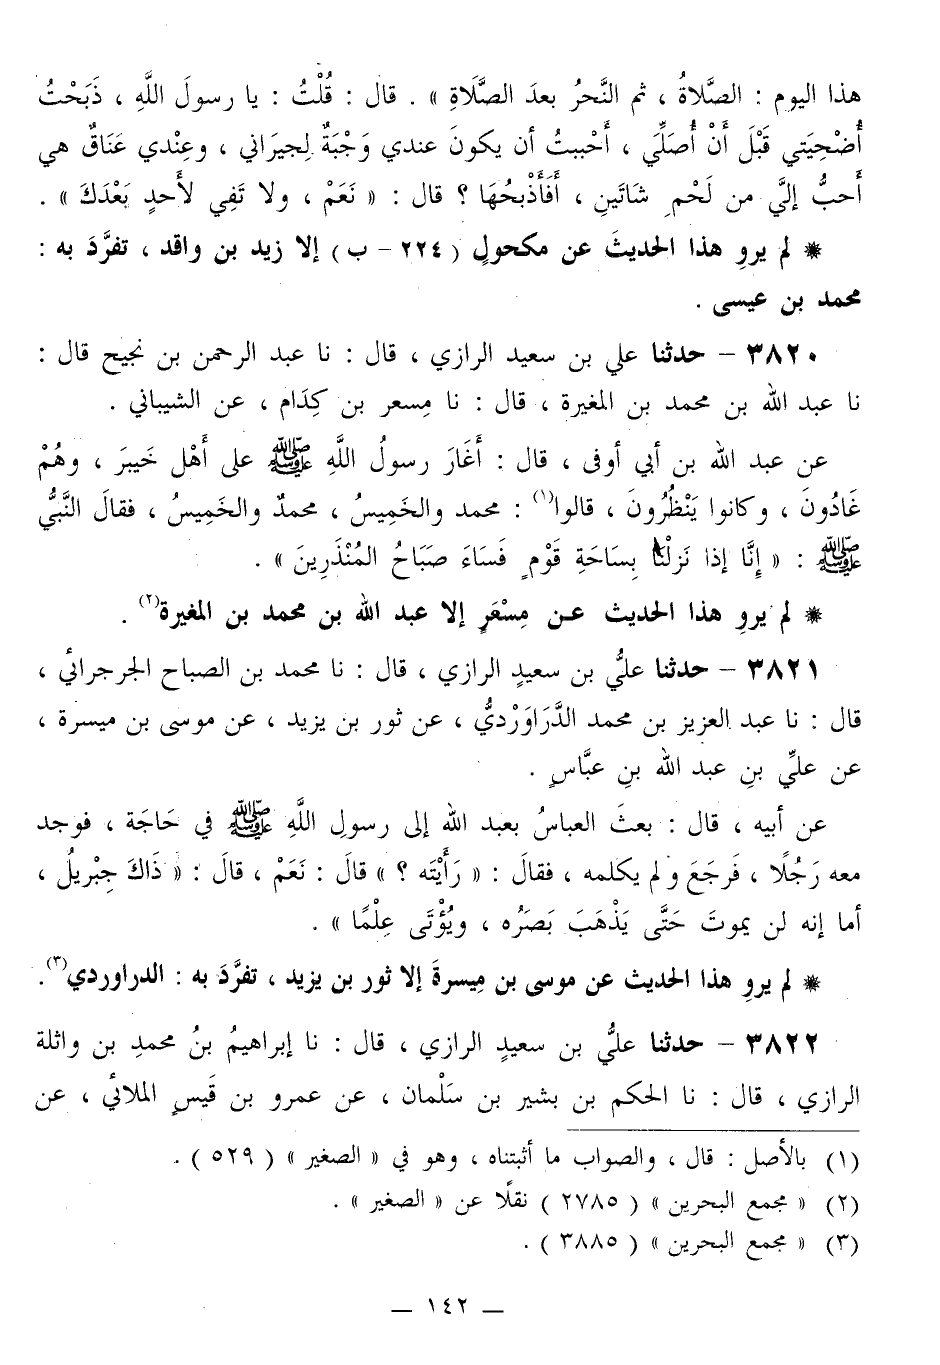 هذا اليوم : الصَّلاةُ ، ثم النَّحرُ بعدَ الصَّلَاةِ » . قال : قُلْتُ : يا رسولَ اللَّهِ ، ذَبَحْتُ
أُضْحِيَتي قَبْلَ أَنْ أُصَلِّيَ ، أَحْببتُ أن يكونَ عندي وَجْبَةٌ لِجيرَاني ، وعِنْدي عَنَاقٌ هي
أَحبُّ إليَّ من لَحْمِ شَاتَينِ ، أَفَأَذْبحُهَا ؟ قال : « نَعَمْ ، ولا تَفِي لأَحدٍ بَعْدَكَ » .
* لم يروِ هذا الحديثَ عن مكحولٍ ( ٢٢٤ - ب ) إلا زيد بن واقد ، تفرَّدَ به :
محمد بن عيسى .
٣٨٢٠ - حدثنا علي بن سعيد الرازي ، قال : نا عبد الرحمن بن نجيح قال :
نا عبد الله بن محمد بن المغيرة ، قال : نا مِسعر بن كِدَام ، عن الشيباني .
عن عبد الله بن أبي أوفى ، قال : أَغَارَ رسولُ اللَّهِ ﷺ على أَهْل خَيبرَ ، وهُمْ
غَادُونَ ، وكانوا يَنْظُرُونَ ، قالوا(١) : محمد والخَمِيسُ ، محمدٌ والخَمِيسُ ، فقالَ النَّبيُّ
ﷺ : « إِنَّا إذا نَزلْنَا بِسَاحَةِ قَوْمٍ فَسَاءَ صَبَاحُ المُنْذَرِينَ » .
* لم يروِ هذا الحديث عن مِسْعَرٍ إلا عبد الله بن محمد بن المغيرة(٢) .
٣٨٢١ - حدثنا عليُّ بن سعيدٍ الرازي ، قال : نا محمد بن الصباح الجرجرائي ،
قال : نا عبد العزيز بن محمد الدَّرَاوَرْديُّ ، عن ثور بن يزيد ، عن موسى بن ميسرة ،
عن عليِّ بنِ عبد الله بنِ عبَّاسٍ .
عن أبيه ، قال : بعثَ العباسُ بعبد الله إلى رسولِ اللَّهِ ﷺ في حَاجَة ، فوجد
معه رَجُلًا ، فَرجَعَ ولم يكلمه ، فقالَ : « رَأَيْتَه ؟ » قالَ : نَعَمْ ، قالَ : « ذَاكَ جِبْريلُ ،
أما إنه لن يموتَ حَتَّى يَذْهَبَ بَصَرُه ، ويُؤْتَى عِلْمًا » .
* لم يروِ هذا الحديث عن موسى بن مِيسرةَ إلا ثور بن يزيد ، تفرَّدَ به : الدراوردي(٣).
٣٨٢٢ - حدثنا عليُّ بن سعيدٍ الرازي ، قال : نا إبراهيمُ بنُ محمدِ بن واثلة
الرازي ، قال : نا الحكم بن بشير بن سَلْمان ، عن عمرو بن قَيسٍ الملائي ، عن
(١) بالأصل : قال ، والصواب ما أثبتناه ، وهو في « الصغير » ( ٥٢٩ ) .
(٢) « مجمع البحرين » ( ٢٧٨٥ ) نقلًا عن « الصغير » .
(٣) « مجمع البحرين » ( ٣٨٨٥ ) .
— ١٤٢ —